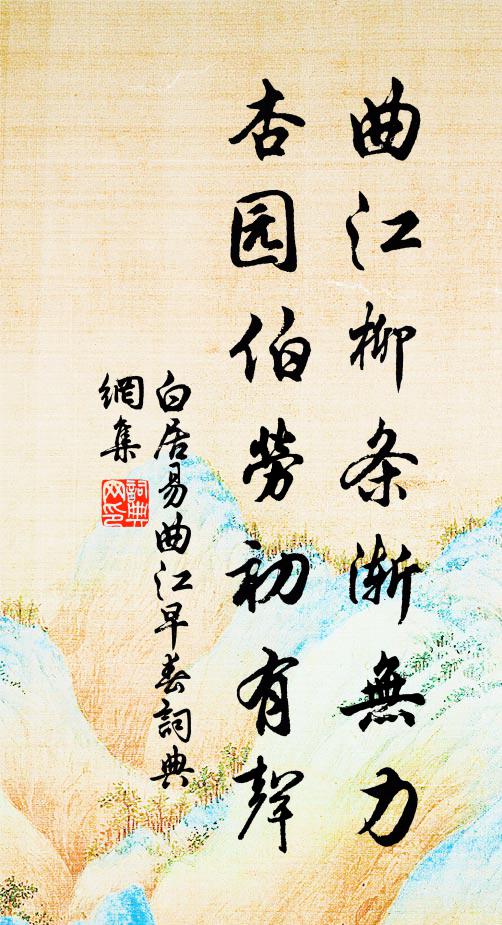 曲江柳条渐無力
杏园伯劳初有聲
白居易曲江早春詞典
網集
詞典
网印